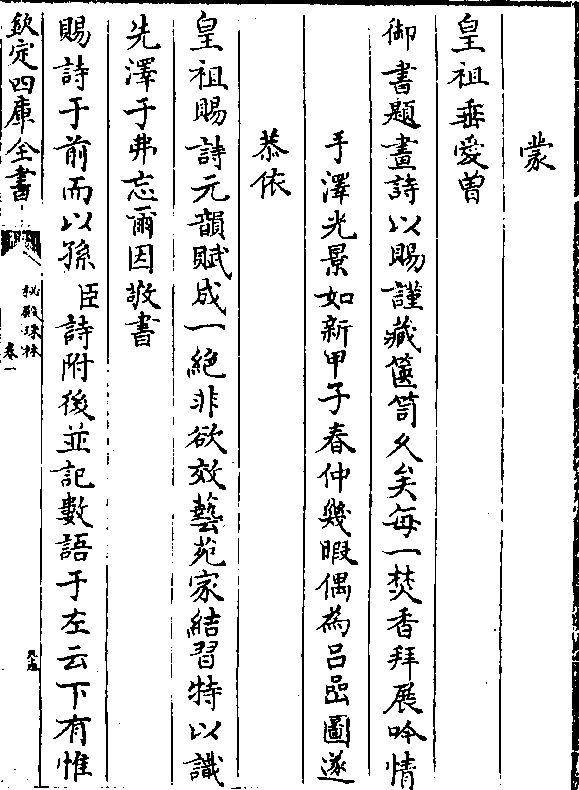 蒙
皇祖垂愛曾
御書題畫詩以賜謹藏篋笥久矣每一焚香拜展吟情
手澤光景如新甲子春仲幾暇偶為呂嵒圖遂
恭依
皇祖賜詩元韻賦成一絕非欲效藝苑家結習特以識
先澤于弗忘爾因敬書
賜詩于前而以孫臣詩附後並記數語于左云下有惟
欽定四庫全書
秘殿珠林
卷一